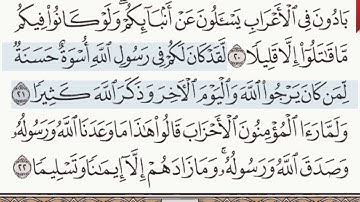 بَادُونَ فِي ٱلْأَعْرَابِ يَسْـَٔلُونَ عَنْ أَنۢبَآئِكُمْ ۖ وَلَوْ كَانُوا۟ فِيكُم
مَّا قَٰتَلُوٓا۟ إِلَّا قَلِيلًا ٢٠ لَّقَدْ كَانَ لَكُمْ فِي رَسُولِ ٱللَّهِ أُسْوَةٌ حَسَنَةٌ
لِّمَن كَانَ يَرْجُوا۟ ٱللَّهَ وَٱلْيَوْمَ ٱلْـَٔاخِرَ وَذَكَرَ ٱللَّهَ كَثِيرًا ٢١
وَلَمَّا رَءَا ٱلْمُؤْمِنُونَ ٱلْأَحْزَابَ قَالُوا۟ هَٰذَا مَا وَعَدَنَا ٱللَّهُ وَرَسُولُهُۥ
وَصَدَقَ ٱللَّهُ وَرَسُولُهُۥ ۚ وَمَا زَادَهُمْ إِلَّآ إِيمَٰنًا وَتَسْلِيمًا ٢٢